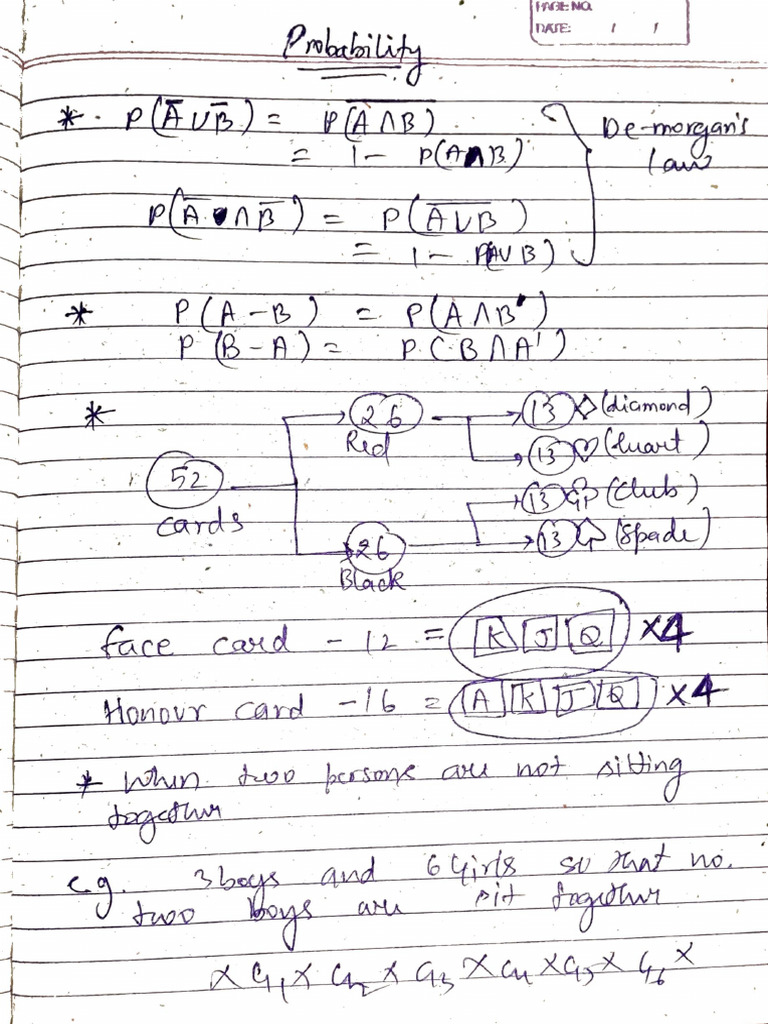 PAGE NO.
DATE: / /
Probability
* . P(A̅ ∪ B̅) = P(A̅ ∩ B̅)
= 1 - P(A ∩ B)
De-morgan's
law
P(A̅ ∩ B̅) = P(A̅ ∪ B̅)
= 1 - P(A ∪ B)
* P(A - B) = P(A ∩ B')
P(B - A) = P(B ∩ A')
*
52
cards
26
Red
13 ◇ (diamond)
13 ♡ (heart)
26
Black
13 ♧ (club)
13 ♤ (Spade)
face card - 12 = K J Q x4
Honour card - 16 = A K J Q x4
* When two persons are not sitting
together
e.g. 3 boys and 6 Girls so that no.
two boys are sit together
x G1 x G2 x G3 x G4 x G5 x G6 x